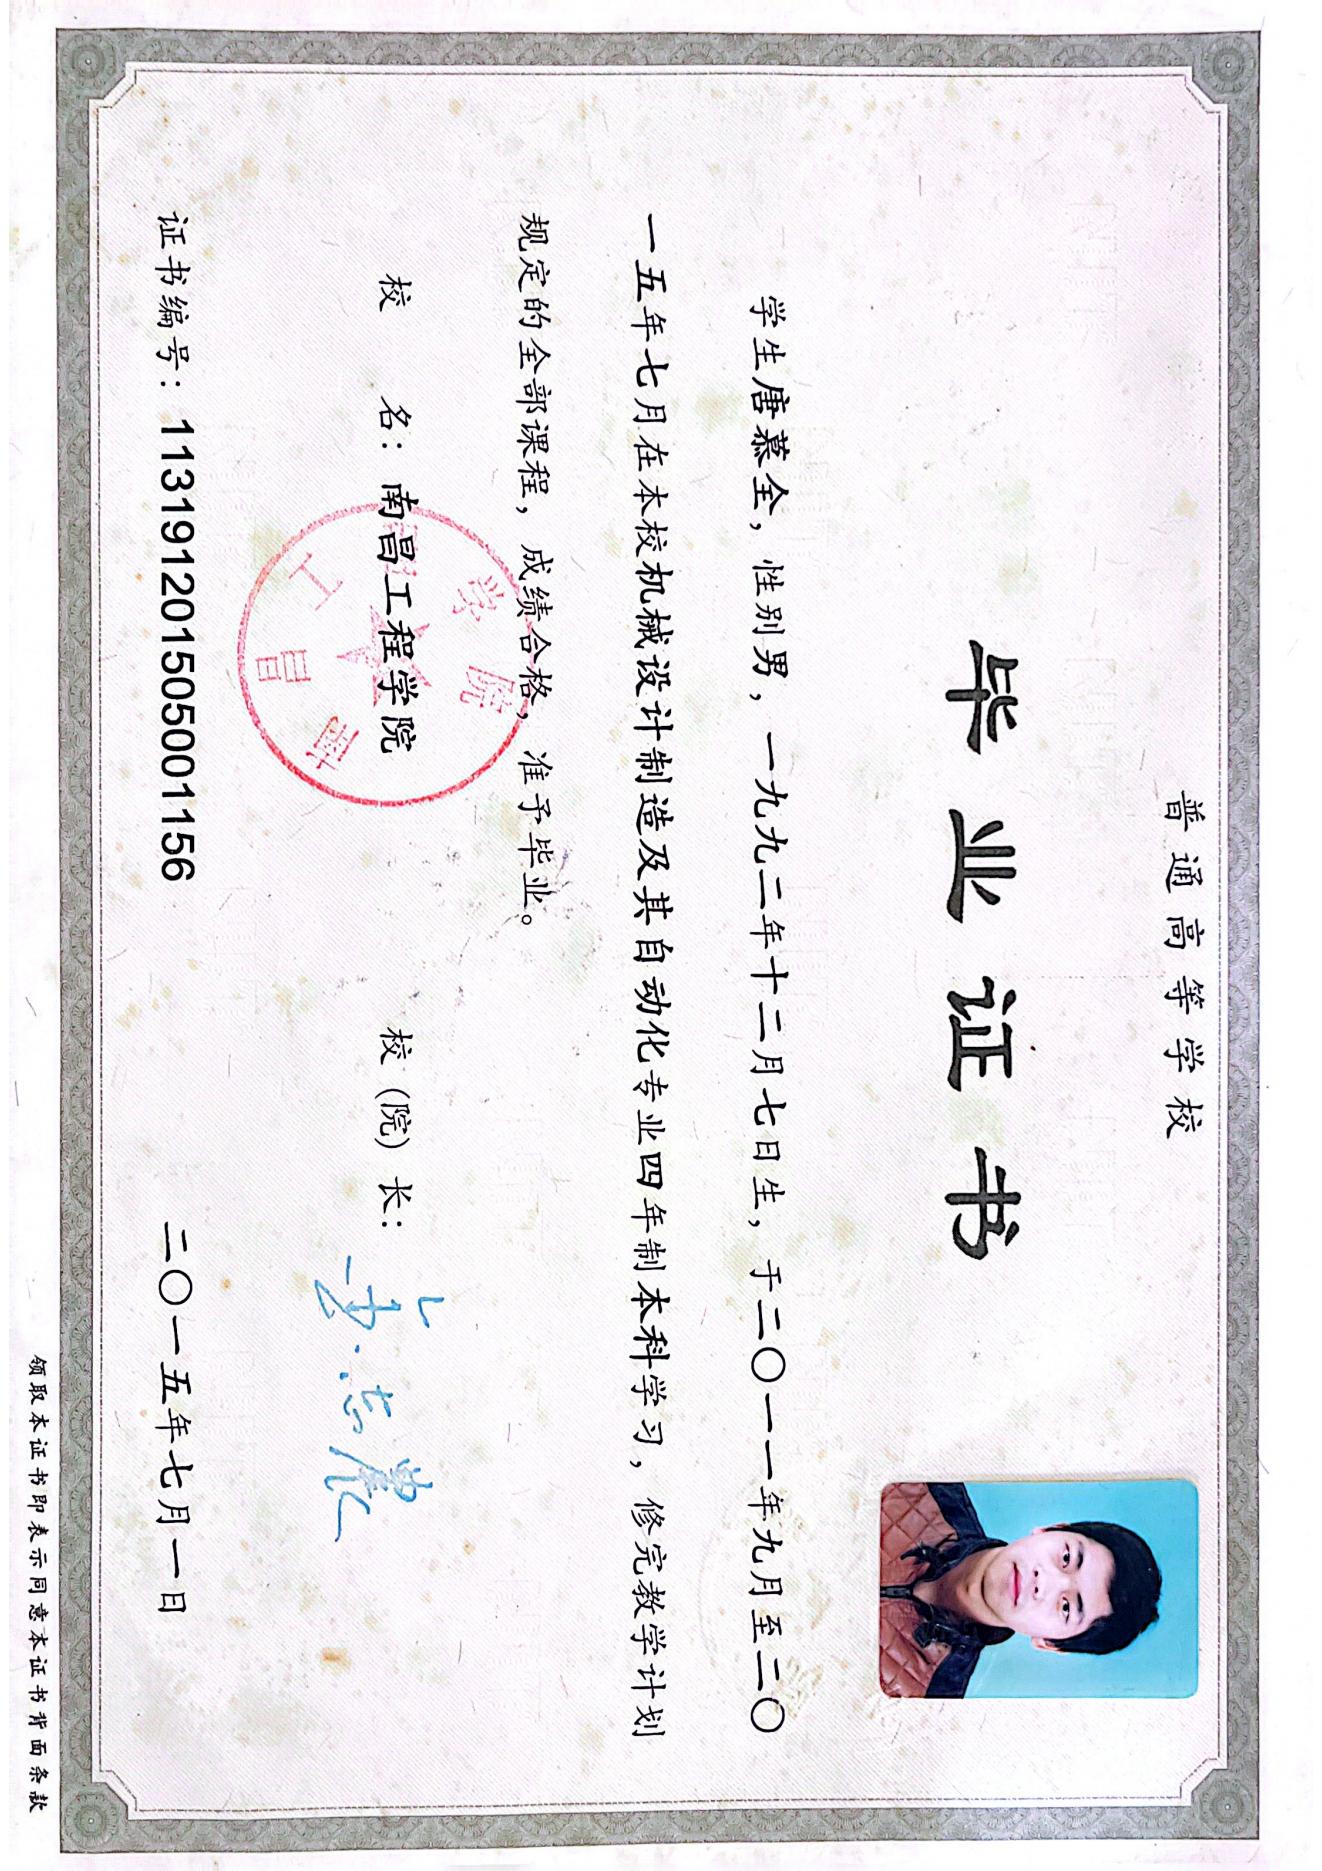 普通高等学校
毕业证书
学生唐慕全，性别男，一九九二年十二月七日生，于二〇一一年九月至二〇
一五年七月在本校机械设计制造及其自动化专业四年制本科学习，修完教学计划
规定的全部课程，成绩合格，准予毕业。
校 名：南昌工程学院 校（院）长：
证书编号：113191201505001156 二〇一五年七月一日
领取本证书即表示同意本证书背面条款